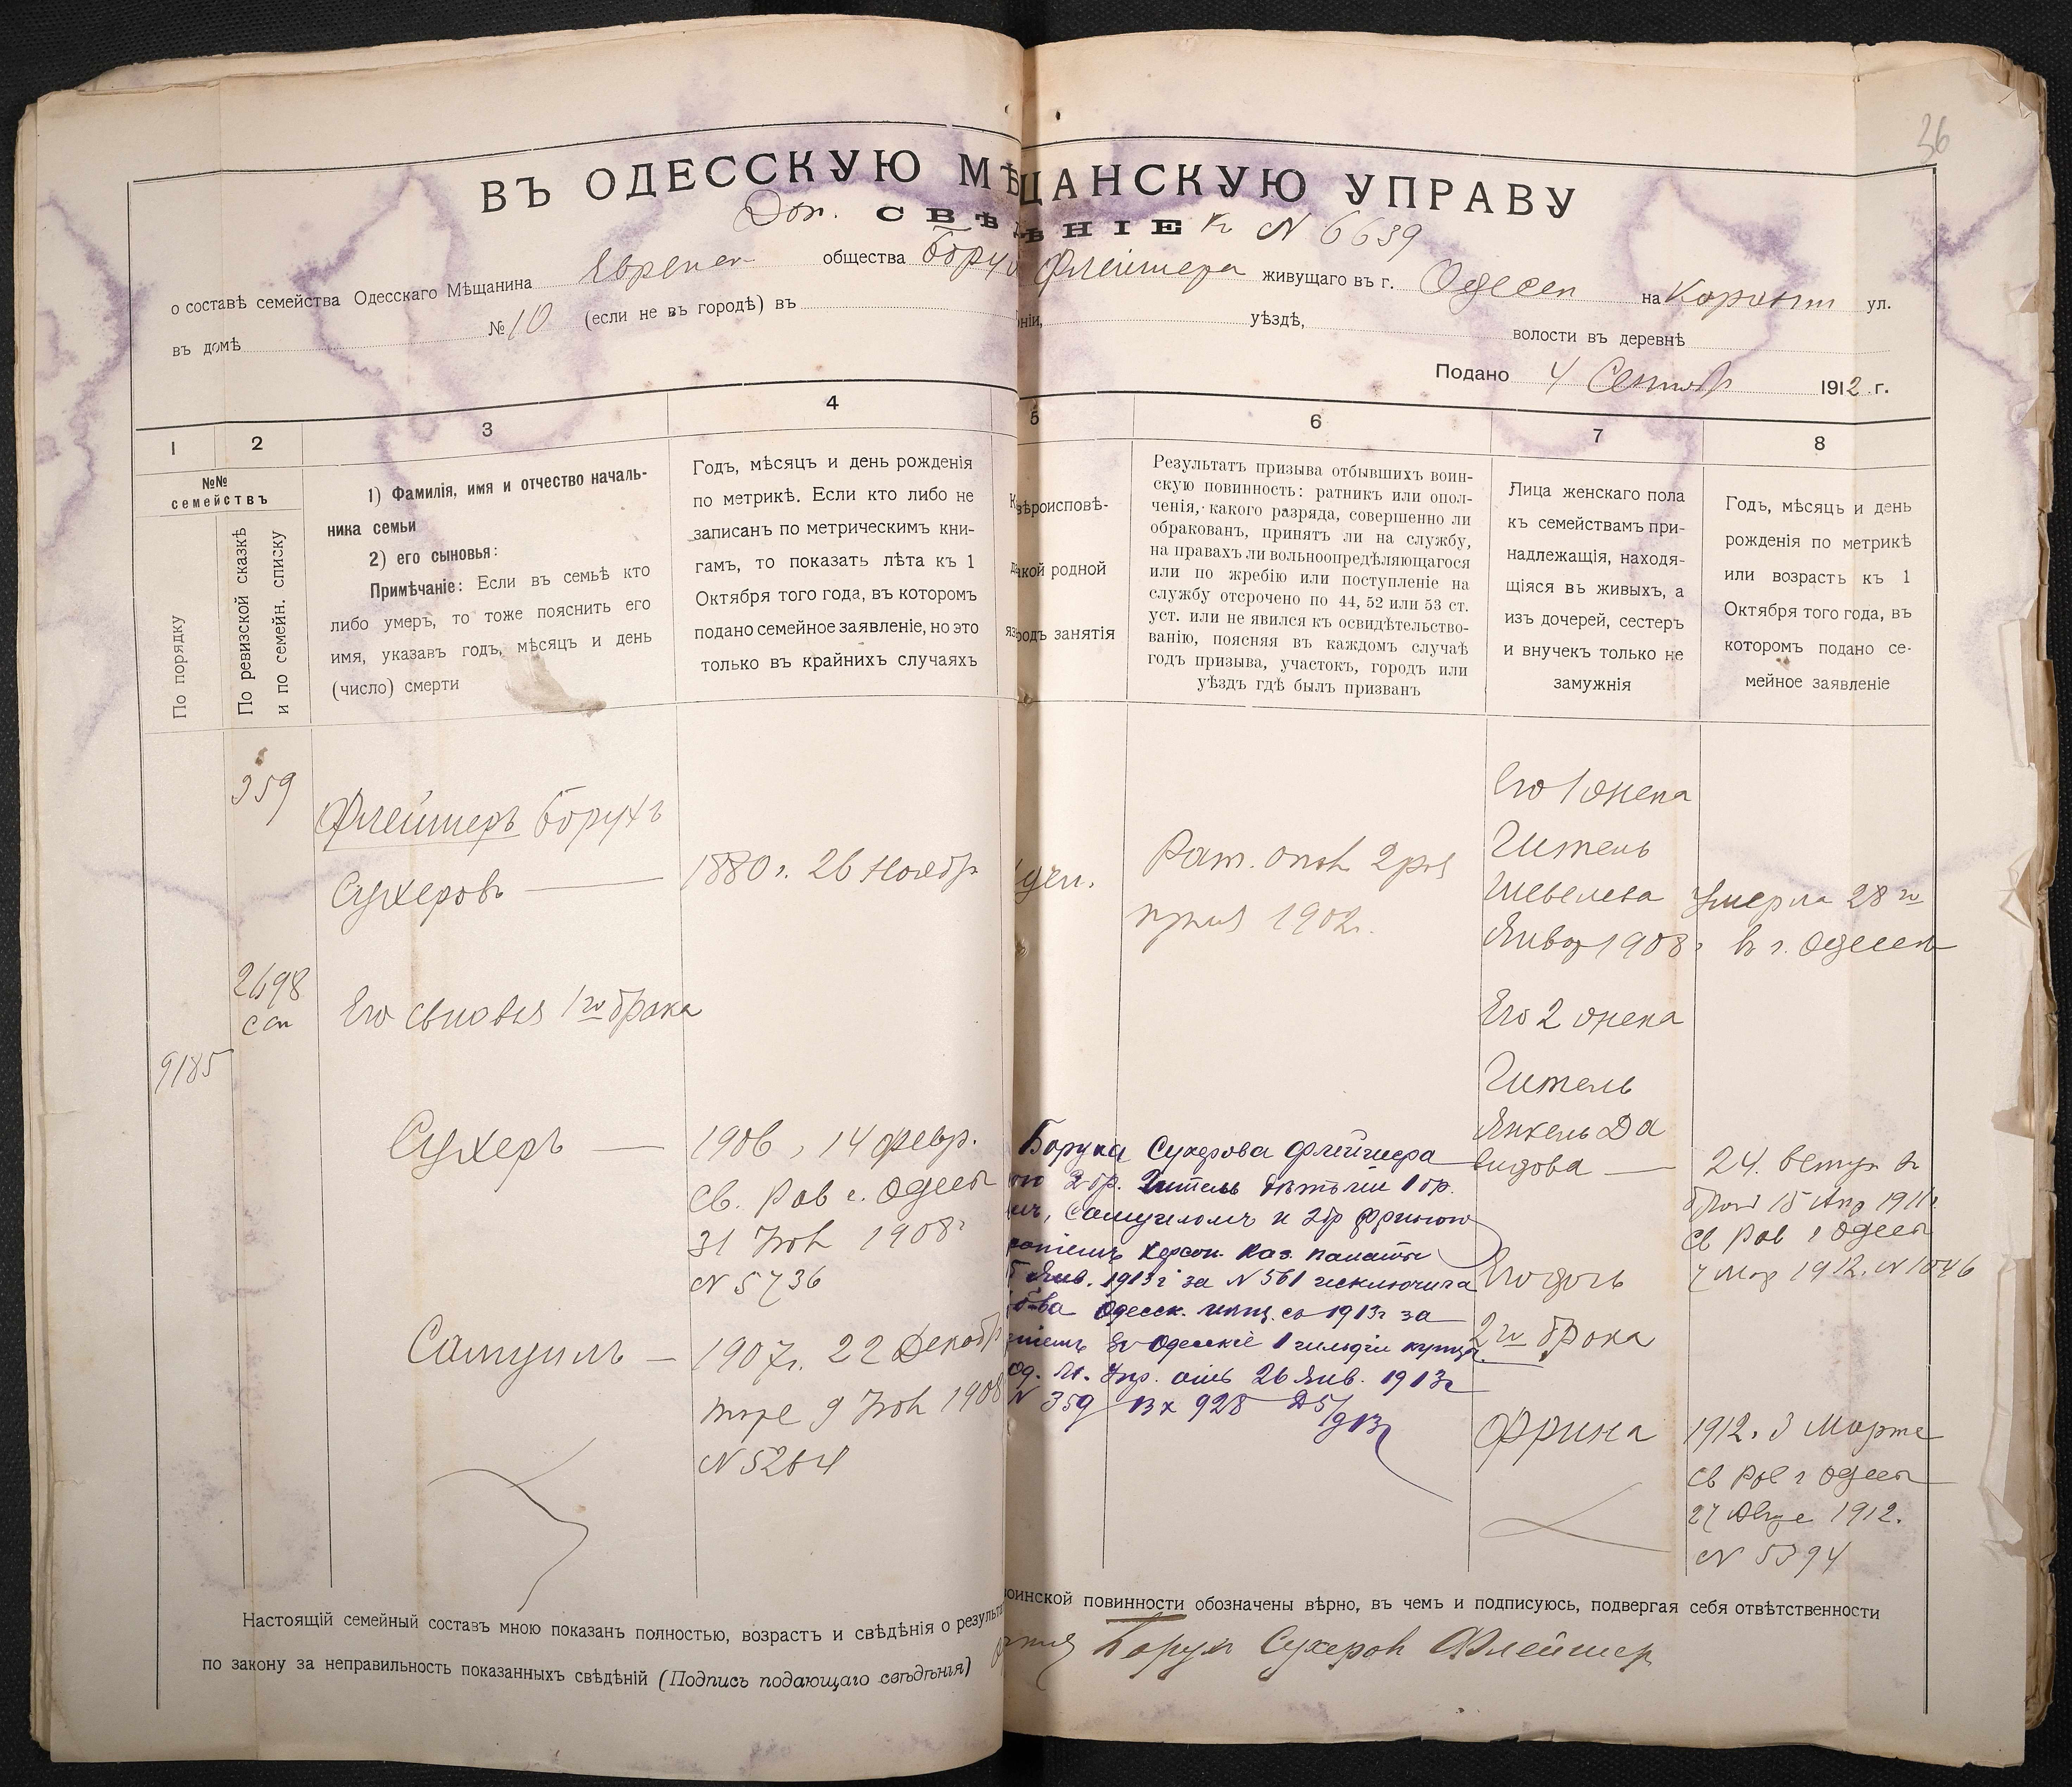 36
ВЪ ОДЕССКУЮ МѢЩАНСКУЮ УПРАВУ
Доп. СВѢДѢНІЕ к N 6639
о составѣ семейства Одесскаго Мѣщанина общества Флейшера живущаго въ г. Одессѣ на ул.
въ домѣ № 10 (если не въ городѣ) въ ніи, уѣздѣ, волости въ деревнѣ
Подано 4 1912 г.
1 2 3 4 5 6 7 8
№№
семействъ
По порядку
По ревизской сказкѣ
и по семейн. списку
1) Фамилія, имя и отчество началь-
ника семьи
2) его сыновья:
Примѣчаніе: Если въ семьѣ кто
либо умеръ, то тоже пояснить его
имя, указавъ годъ, мѣсяцъ и день
(число) смерти
Годъ, мѣсяцъ и день рожденія
по метрикѣ. Если кто либо не
записанъ по метрическимъ кни-
гамъ, то показать лѣта къ 1
Октября того года, въ которомъ
подано семейное заявленіе, но это
только въ крайнихъ случаяхъ
вѣроисповѣ-
кой родной
родъ занятія
Результатъ призыва отбывшихъ воин-
скую повинность: ратникъ или опол-
ченія, какого разряда, совершенно ли
обракованъ, принятъ ли на службу,
на правахъ ли вольноопредѣляющагося
или по жребію или поступленіе на
службу отсрочено по 44, 52 или 53 ст.
уст. или не явился къ освидѣтельство-
ванію, поясняя въ каждомъ случаѣ
годъ призыва, участокъ, городъ или
уѣздъ гдѣ былъ призванъ
Лица женскаго пола
къ семействамъ при-
надлежащія, находя-
щіяся въ живыхъ, а
изъ дочерей, сестеръ
и внучекъ только не
замужнія
Годъ, мѣсяцъ и день
рожденія по метрикѣ
или возрастъ къ 1
Октября того года, въ
которомъ подано се-
мейное заявленіе
359
Флейшеръ Борухъ
Сухеровъ
1880 г. 26 Ноябр
Рат. опол 2 раз
1902 г.
2698
Его сыновья 1го брака
9185
Сухеръ
1906, 14 февр.
Св. Рав г. Одессы
31 1908 г
N 5736
Самуилъ
1907 г. 22 Декабр
9 1908
N 5264
Боруха Сухерова Флейшера
2 бр. Гитель дѣтьми 1 бр.
Самуиломъ и 2 бр Фриною
Херсон. Каз. палаты
Янв. 1913 г за N 561 исключить
Одесск. мѣщ. съ 1913 г за
въ Одесскіе 1 гильдіи купцы
Од. М. Упр. отъ 26 Янв. 1913 г
N 359 Вх 928
Его 1 жена
Гитель
Шевелева
Умерла 28 го
Январ 1908 г. въ г. Одессѣ
Его 2 жена
Гитель
Янкель Да
видова
24.
15 Апр 1911 г.
Св Рав г Одессы
1912. N 1046
Его дочь
2го брака
Фрина
1912. 3 Марта
Св Рав г Одессы
27 1912.
N 5394
Настоящій семейный составъ мною показанъ полностью, возрастъ и свѣдѣнія о результа воинской повинности обозначены вѣрно, въ чемъ и подписуюсь, подвергая себя отвѣтственности
по закону за неправильность показанныхъ свѣдѣній (Подпись подающаго свѣдѣнія) Борух Сухеров Флейшер